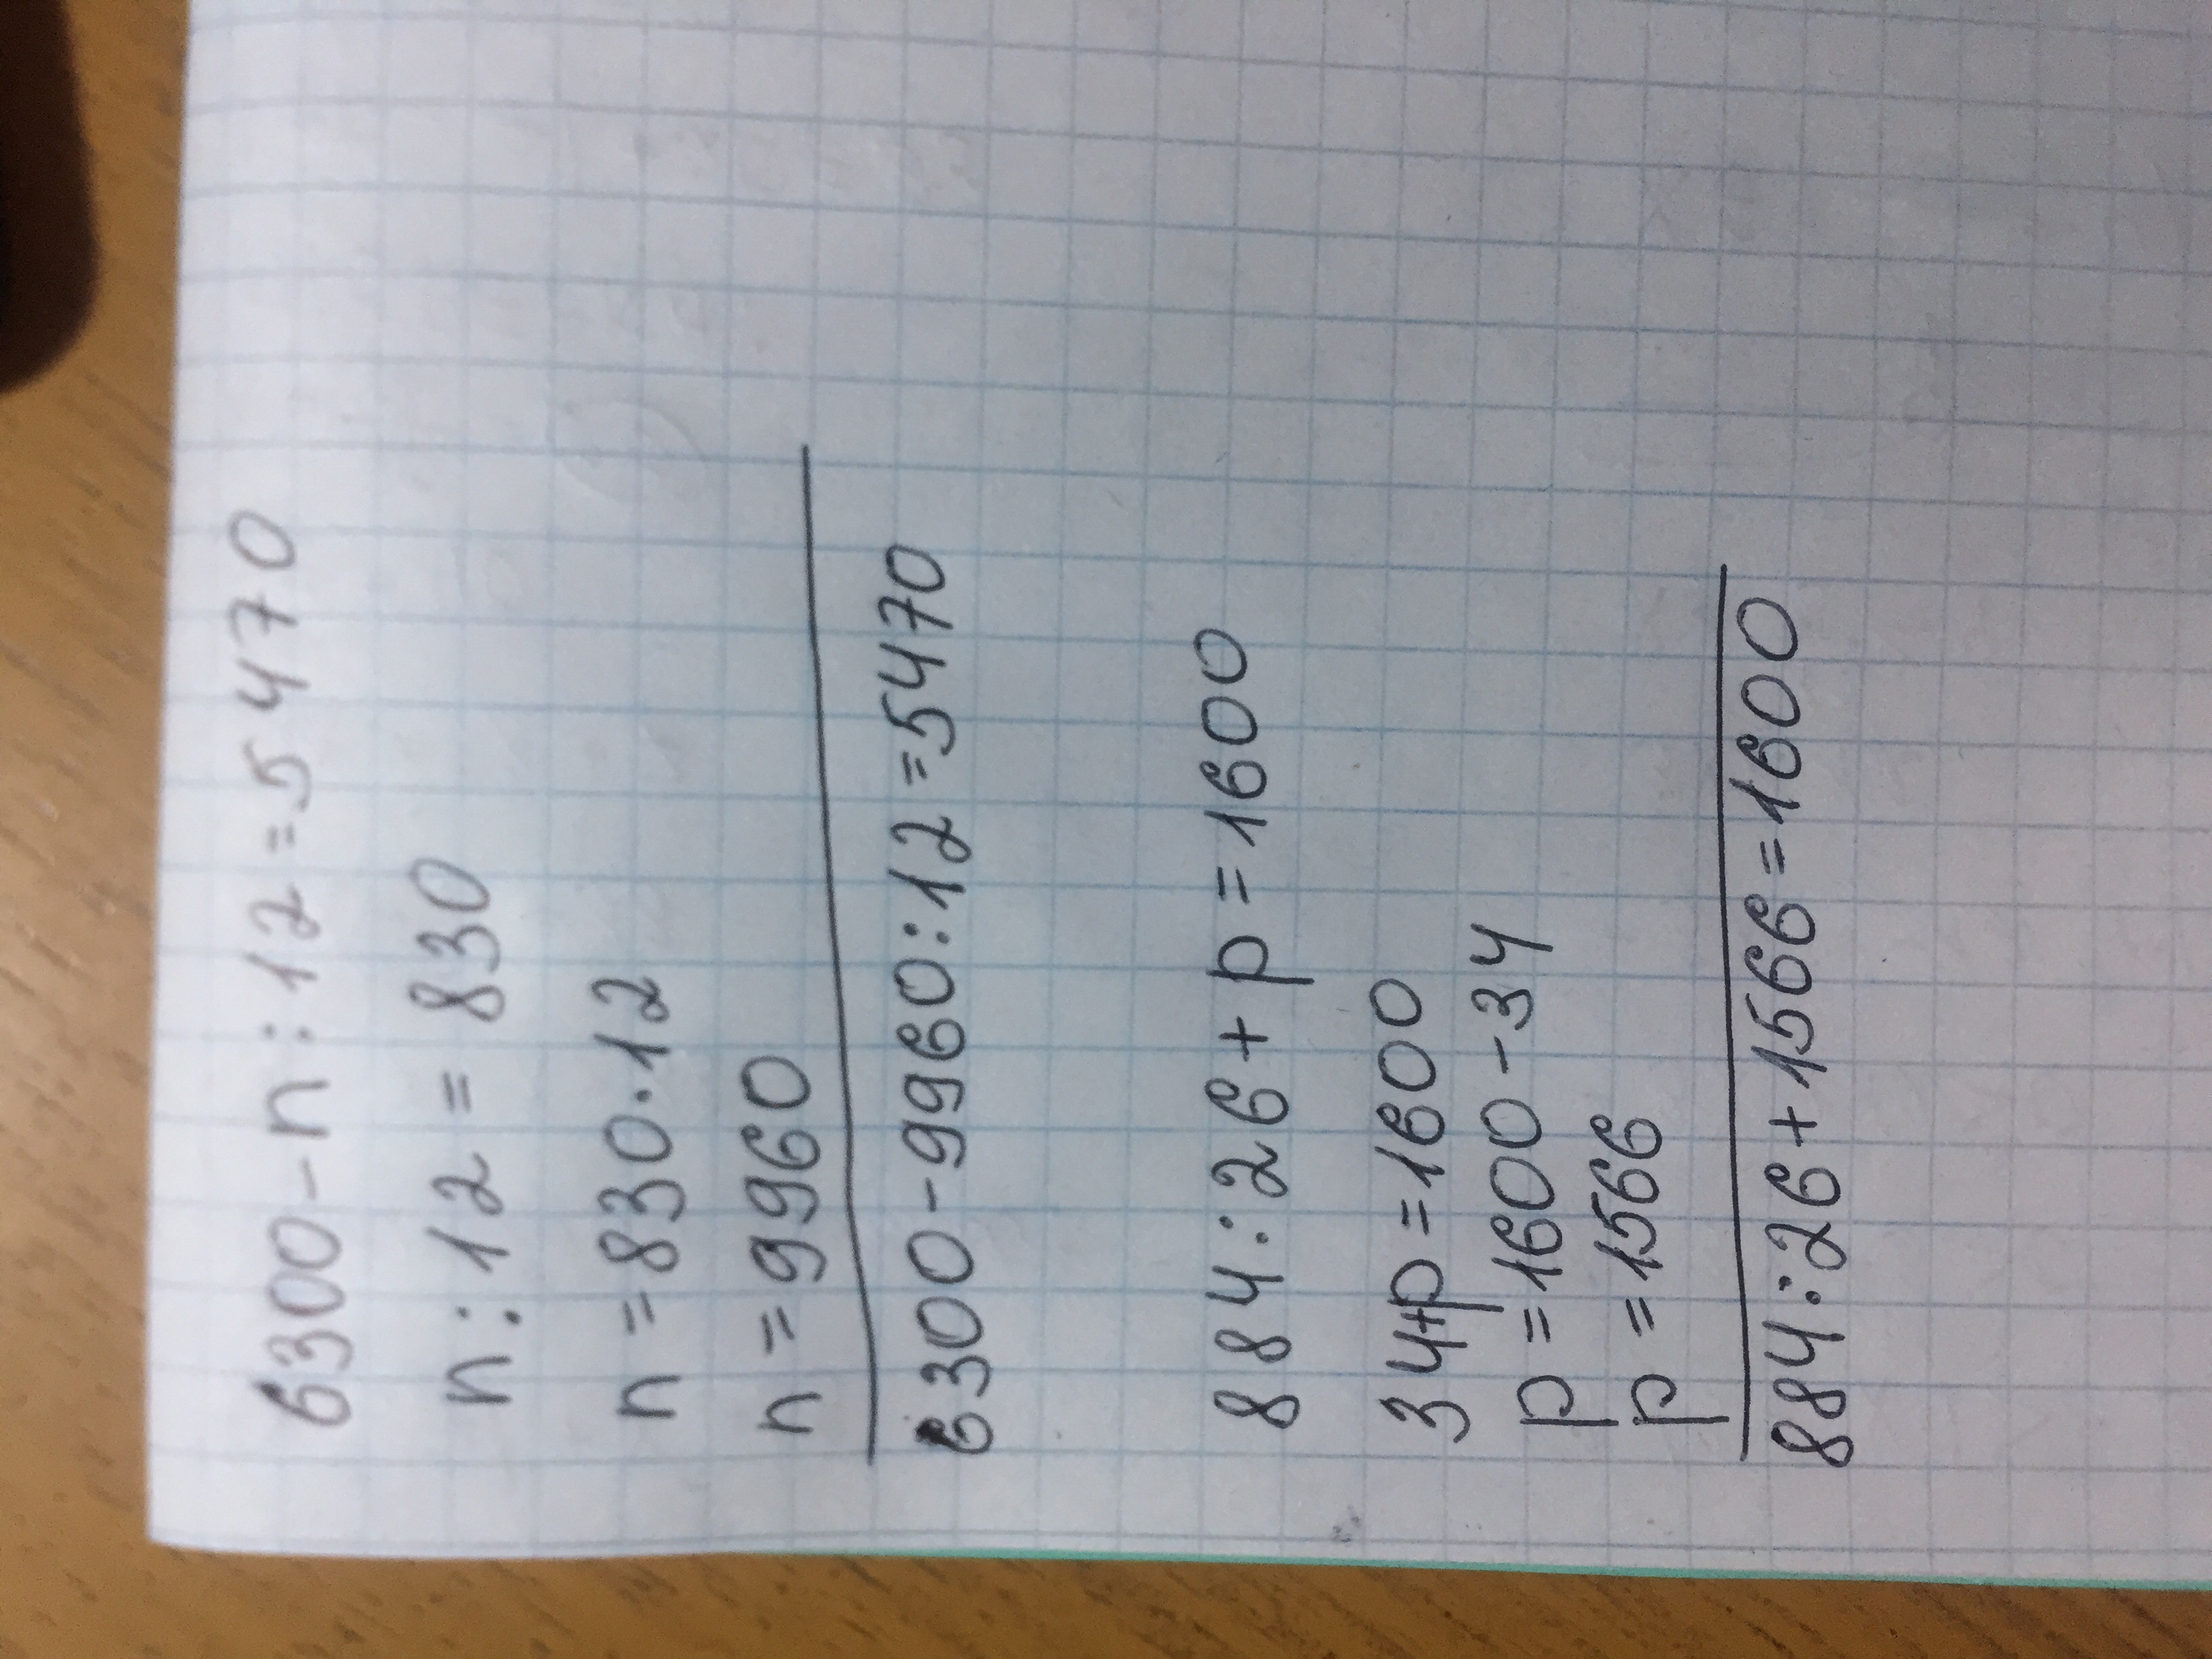 6300-n:12=5470
n:12=830
n=830·12
n=9960
6300-9960:12=5470
884:26+p=1600
34+p=1600
p=1600-34
p=1566
884:26+1566=1600